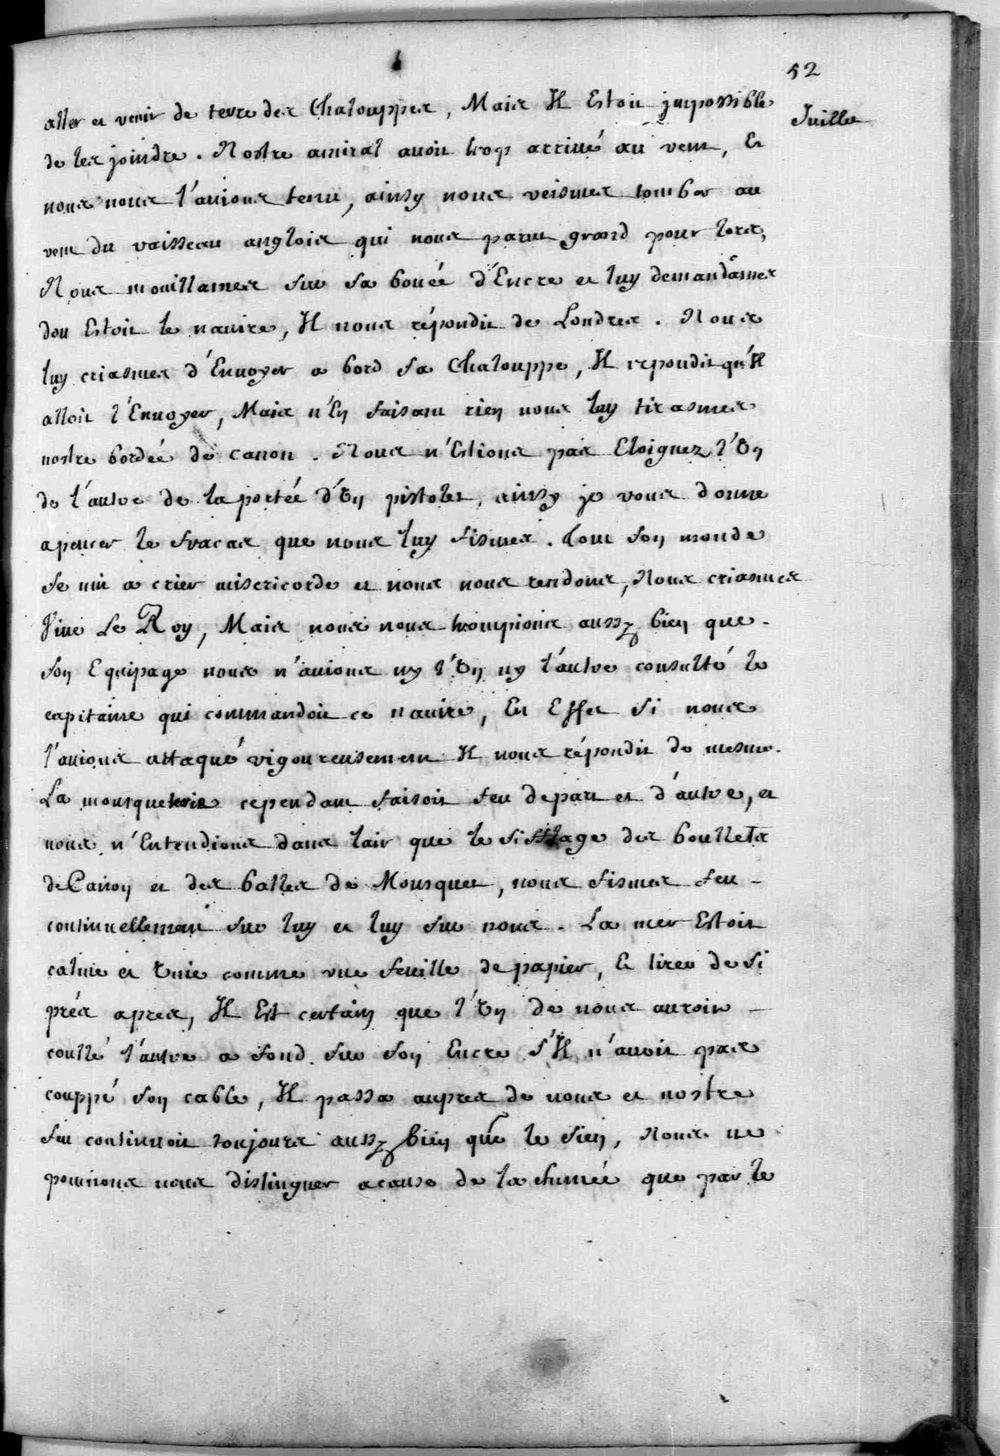 52
Juillet
aller et venir de terre des Chalouppes, Mais Il Estoit jmpossible
de les joindre. Nostre amiral avoit trop arrivé au vent, Et
nous nous l'avions tenu, ainsy nous veismes tomber au
vent du vaisseau anglois qui nous parut grand pour lors,
Nous mouillames sur sa bouée d'Encre et luy demandâmes
dou Estoit le navire, Il nous répondit de Londres. Nous
luy criasmes d'Envoyer a bord sa Chalouppe, Il repondit qu'Il
alloit l'Envoyer, Mais n'En faisant rien nous luy tirasmes
nostre bordée de canon. Nous n'Estions pas Eloignez l'Un
de l'autre de la portée d'Un pistolet, ainsy je vous donne
apenser le fracas que nous luy fismes. Tout son monde
se mit a crier misericorde et nous nous rendons, Nous criasmes
Vive Le Roy, Mais nous nous trompions aussy bien que
son Equipage nous n'avions ny l'Un ny l'autre consulté le
capitaine qui commandoit ce navire, En Effet si nous
l'avions attaqué vigoureusement Il nous répondit de mesme.
La mousqueterie cependant faisoit feu depart et d'autre, et
nous n'Entendions dans lair que le sifflage des boullets
de Canon et des balles de Mousquet, nous fismes feu
continuellement sur luy et luy sur nous. La mer Estoit
calme et Unie comme une feuille de papier, Et tirer de si
prés apres, Il Est certain que l'Un de nous auroit
coullé l'autre a fond sur son Encre s'Il n'avoit pas
couppé son cable, Il passa aupres de nous et nostre
feu continuoit toujours aussy bien que le sien, Nous ne
pouvions nous distinguer acause de la fumée que par le